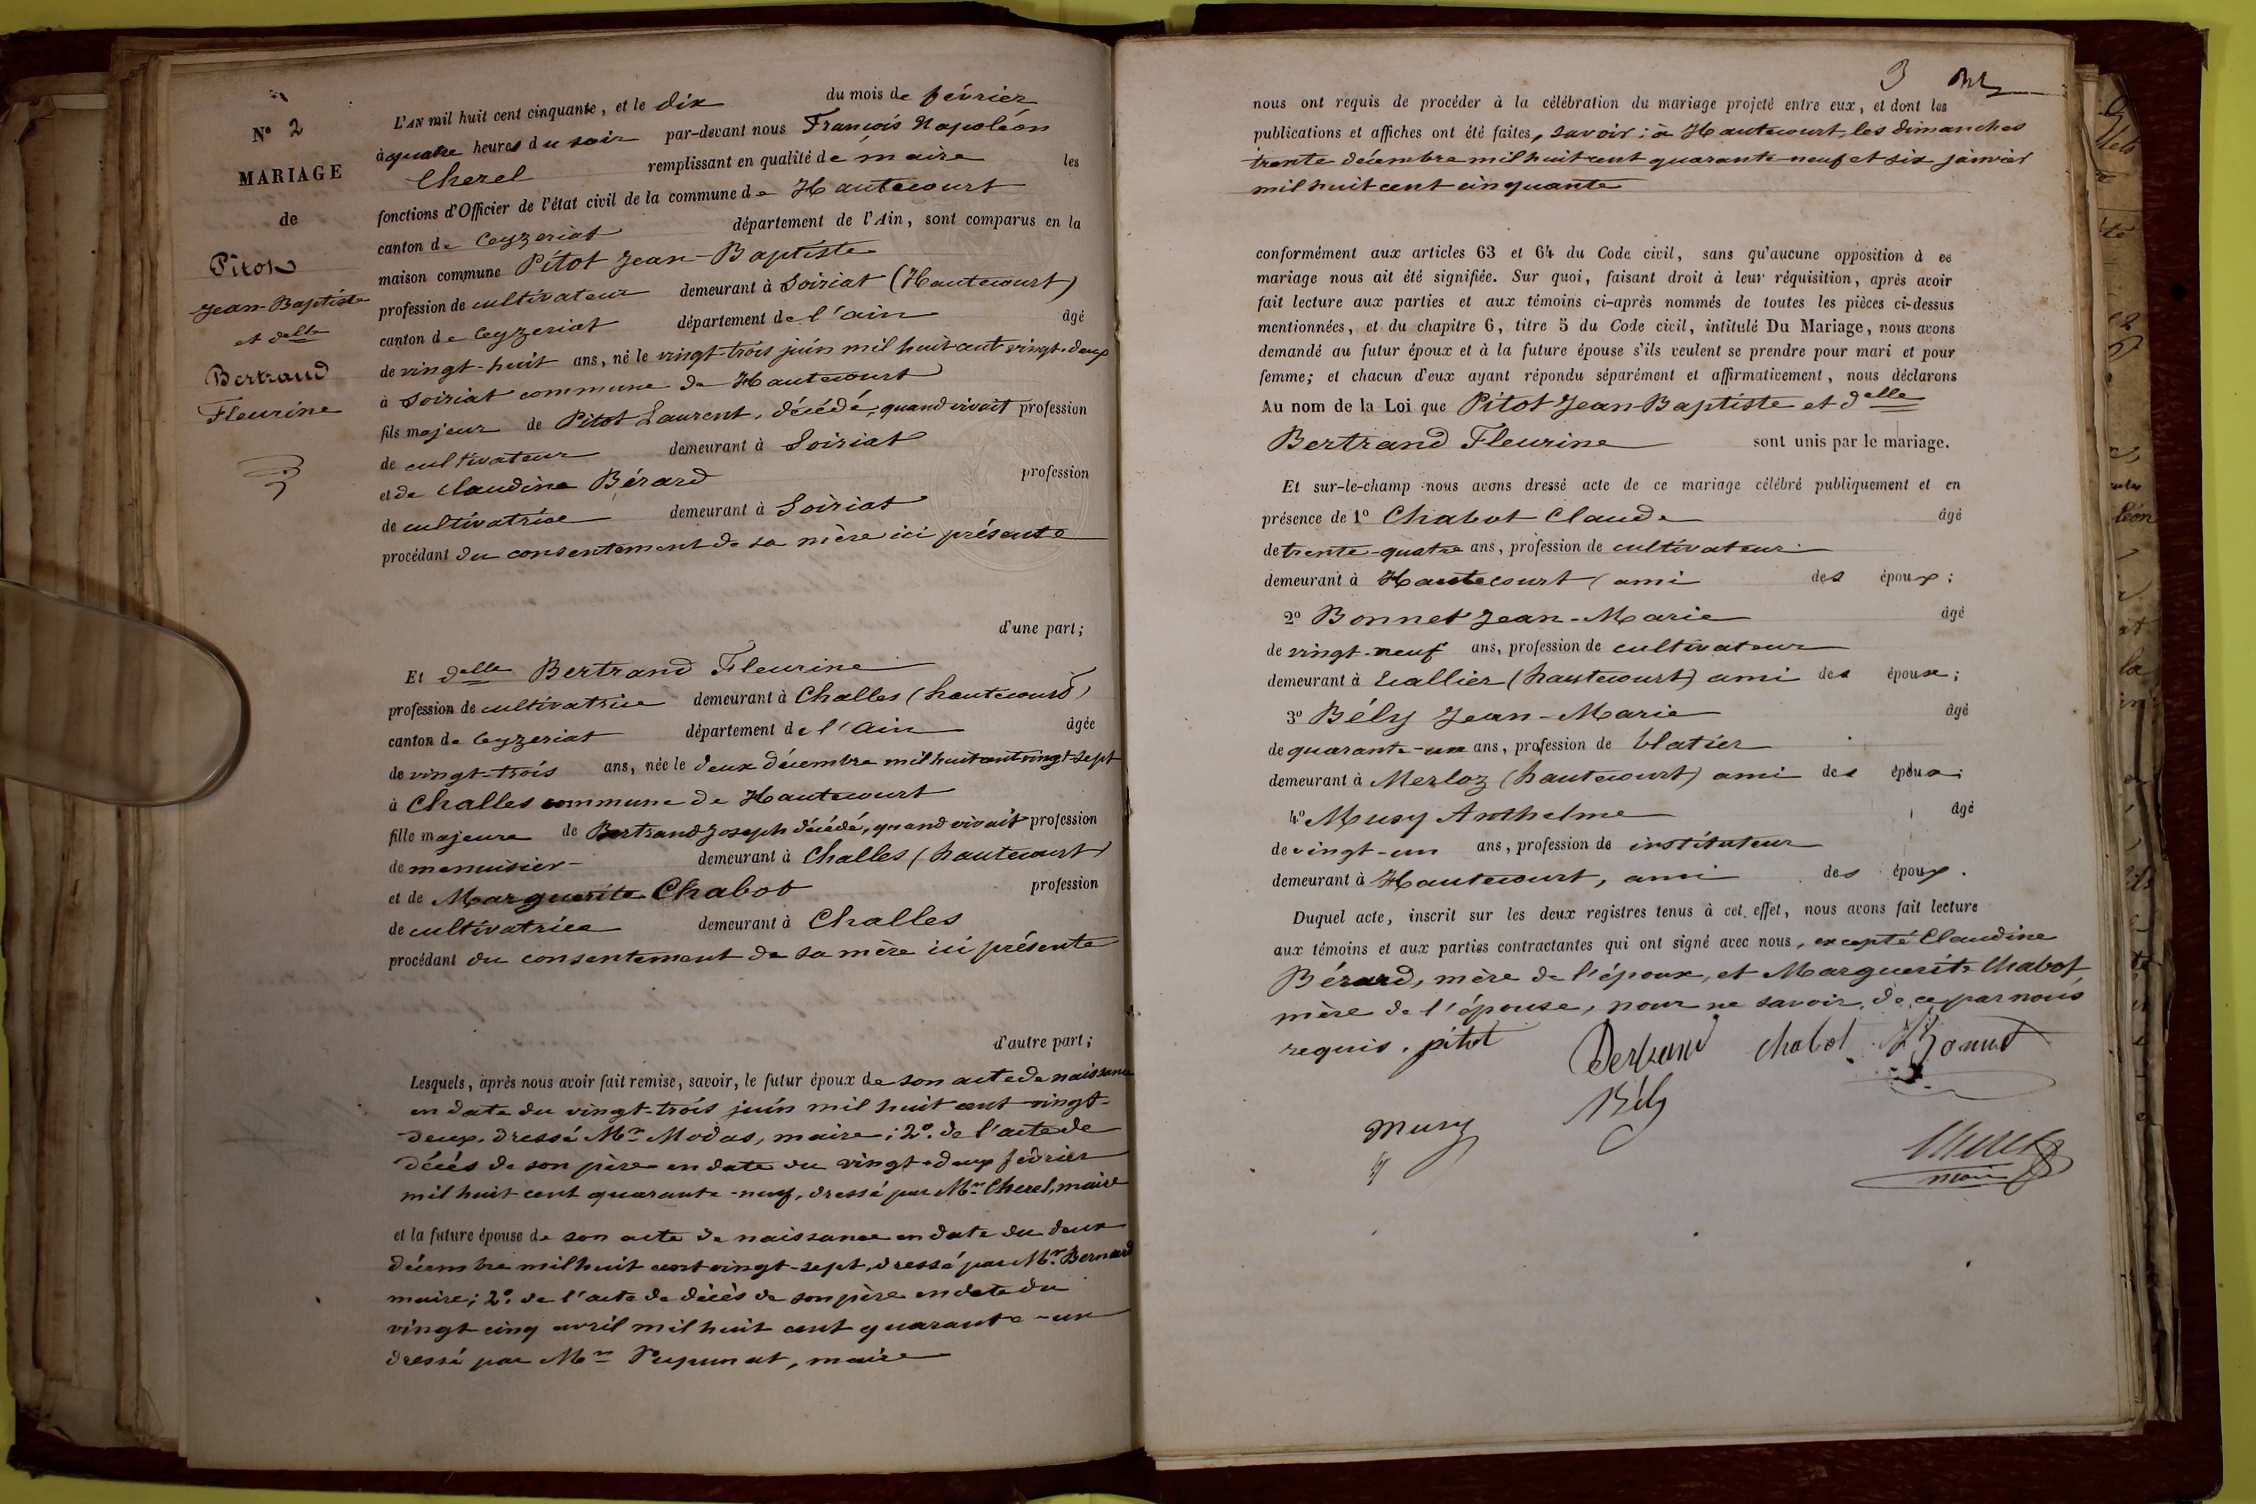 N° 2
MARIAGE
de
Pitot
Jean-Baptiste
et delle
Bertrand
Fleurine
L'AN mil huit cent cinquante, et le dix du mois de février
à quatre heures du soir par-devant nous François Napoléon
Cherel remplissant en qualité de maire les
fonctions d'Officier de l'état civil de la commune de Hautecourt
canton de Ceyzeriat département de l'Ain, sont comparus en la
maison commune Pitot Jean-Baptiste
profession de cultivateur demeurant à Soiriat (Hautecourt)
canton de Ceyzeriat département de l'ain âgé
de vingt-huit ans, né le vingt-trois juin mil huit cent vingt-deux
à Soiriat commune de Hautecourt
fils majeur de Pitot Laurent, décédé, quand vivait profession
de cultivateur demeurant à Soiriat
et de Claudine Bérard profession
de cultivatrice demeurant à Soiriat
procédant du consentement de sa mère ici présente
d'une part;
Et delle Bertrand Fleurine
profession de cultivatrice demeurant à Challes (hautecourt)
canton de Ceyzeriat département de l'Ain âgée
de vingt-trois ans, née le deux décembre mil huit cent vingt-sept
à Challes commune de Hautecourt
fille majeure de Bertrand Joseph décédé, quand vivait profession
de menuisier demeurant à Challes (hautecourt)
et de Marguerite Chabot profession
de cultivatrice demeurant à Challes
procédant du consentement de sa mère ici présente
d'autre part;
Lesquels, après nous avoir fait remise, savoir, le futur époux de son acte de naissance
en date du vingt-trois juin mil huit cent vingt-
deux, dressé Mr Modas, maire; 2° de l'acte de
décès de son père en date du vingt-deux février
mil huit cent quarante-neuf, dressé par Mr Cherel, maire
et la future épouse de son acte de naissance en date du deux
décembre mil huit cent vingt-sept, dressé par Mr Bernard
maire; 2° de l'acte de décès de son père en date du
vingt cinq avril mil huit cent quarante-un
dressé par Mr Pupunat, maire
3
nous ont requis de procéder à la célébration du mariage projeté entre eux, et dont les
publications et affiches ont été faites, savoir: à Hautecourt, les dimanches
trente décembre mil huit cent quarante neuf et six janvier
mil huit cent cinquante
conformément aux articles 63 et 64 du Code civil, sans qu'aucune opposition à ce
mariage nous ait été signifiée. Sur quoi, faisant droit à leur réquisition, après avoir
fait lecture aux parties et aux témoins ci-après nommés de toutes les pièces ci-dessus
mentionnées, et du chapitre 6, titre 5 du Code civil, intitulé Du Mariage, nous avons
demandé au futur époux et à la future épouse s'ils veulent se prendre pour mari et pour
femme; et chacun d'eux ayant répondu séparément et affirmativement, nous déclarons
Au nom de la Loi que Pitot Jean-Baptiste et delle
Bertrand Fleurine sont unis par le mariage.
Et sur-le-champ nous avons dressé acte de ce mariage célébré publiquement et en
présence de 1° Chabot Claude âgé
de trente-quatre ans, profession de cultivateur
demeurant à Hautecourt ami des époux;
2° Bonnet Jean-Marie âgé
de vingt-neuf ans, profession de cultivateur
demeurant à Vallier (hautecourt) ami des époux;
3° Bély Jean-Marie âgé
de quarante-un ans, profession de blatier
demeurant à Merloz (hautecourt) ami des époux;
4° Musy Anthelme âgé
de vingt-un ans, profession de instituteur
demeurant à Hautecourt, ami des époux.
Duquel acte, inscrit sur les deux registres tenus à cet effet, nous avons fait lecture
aux témoins et aux parties contractantes qui ont signé avec nous, excepté Claudine
Bérard, mère de l'époux, et Marguerite Chabot,
mère de l'épouse, pour ne savoir, de ce par nous
requis. pitot Bertrand Chabot Bonnet
Musy Bély
Cherel
maire